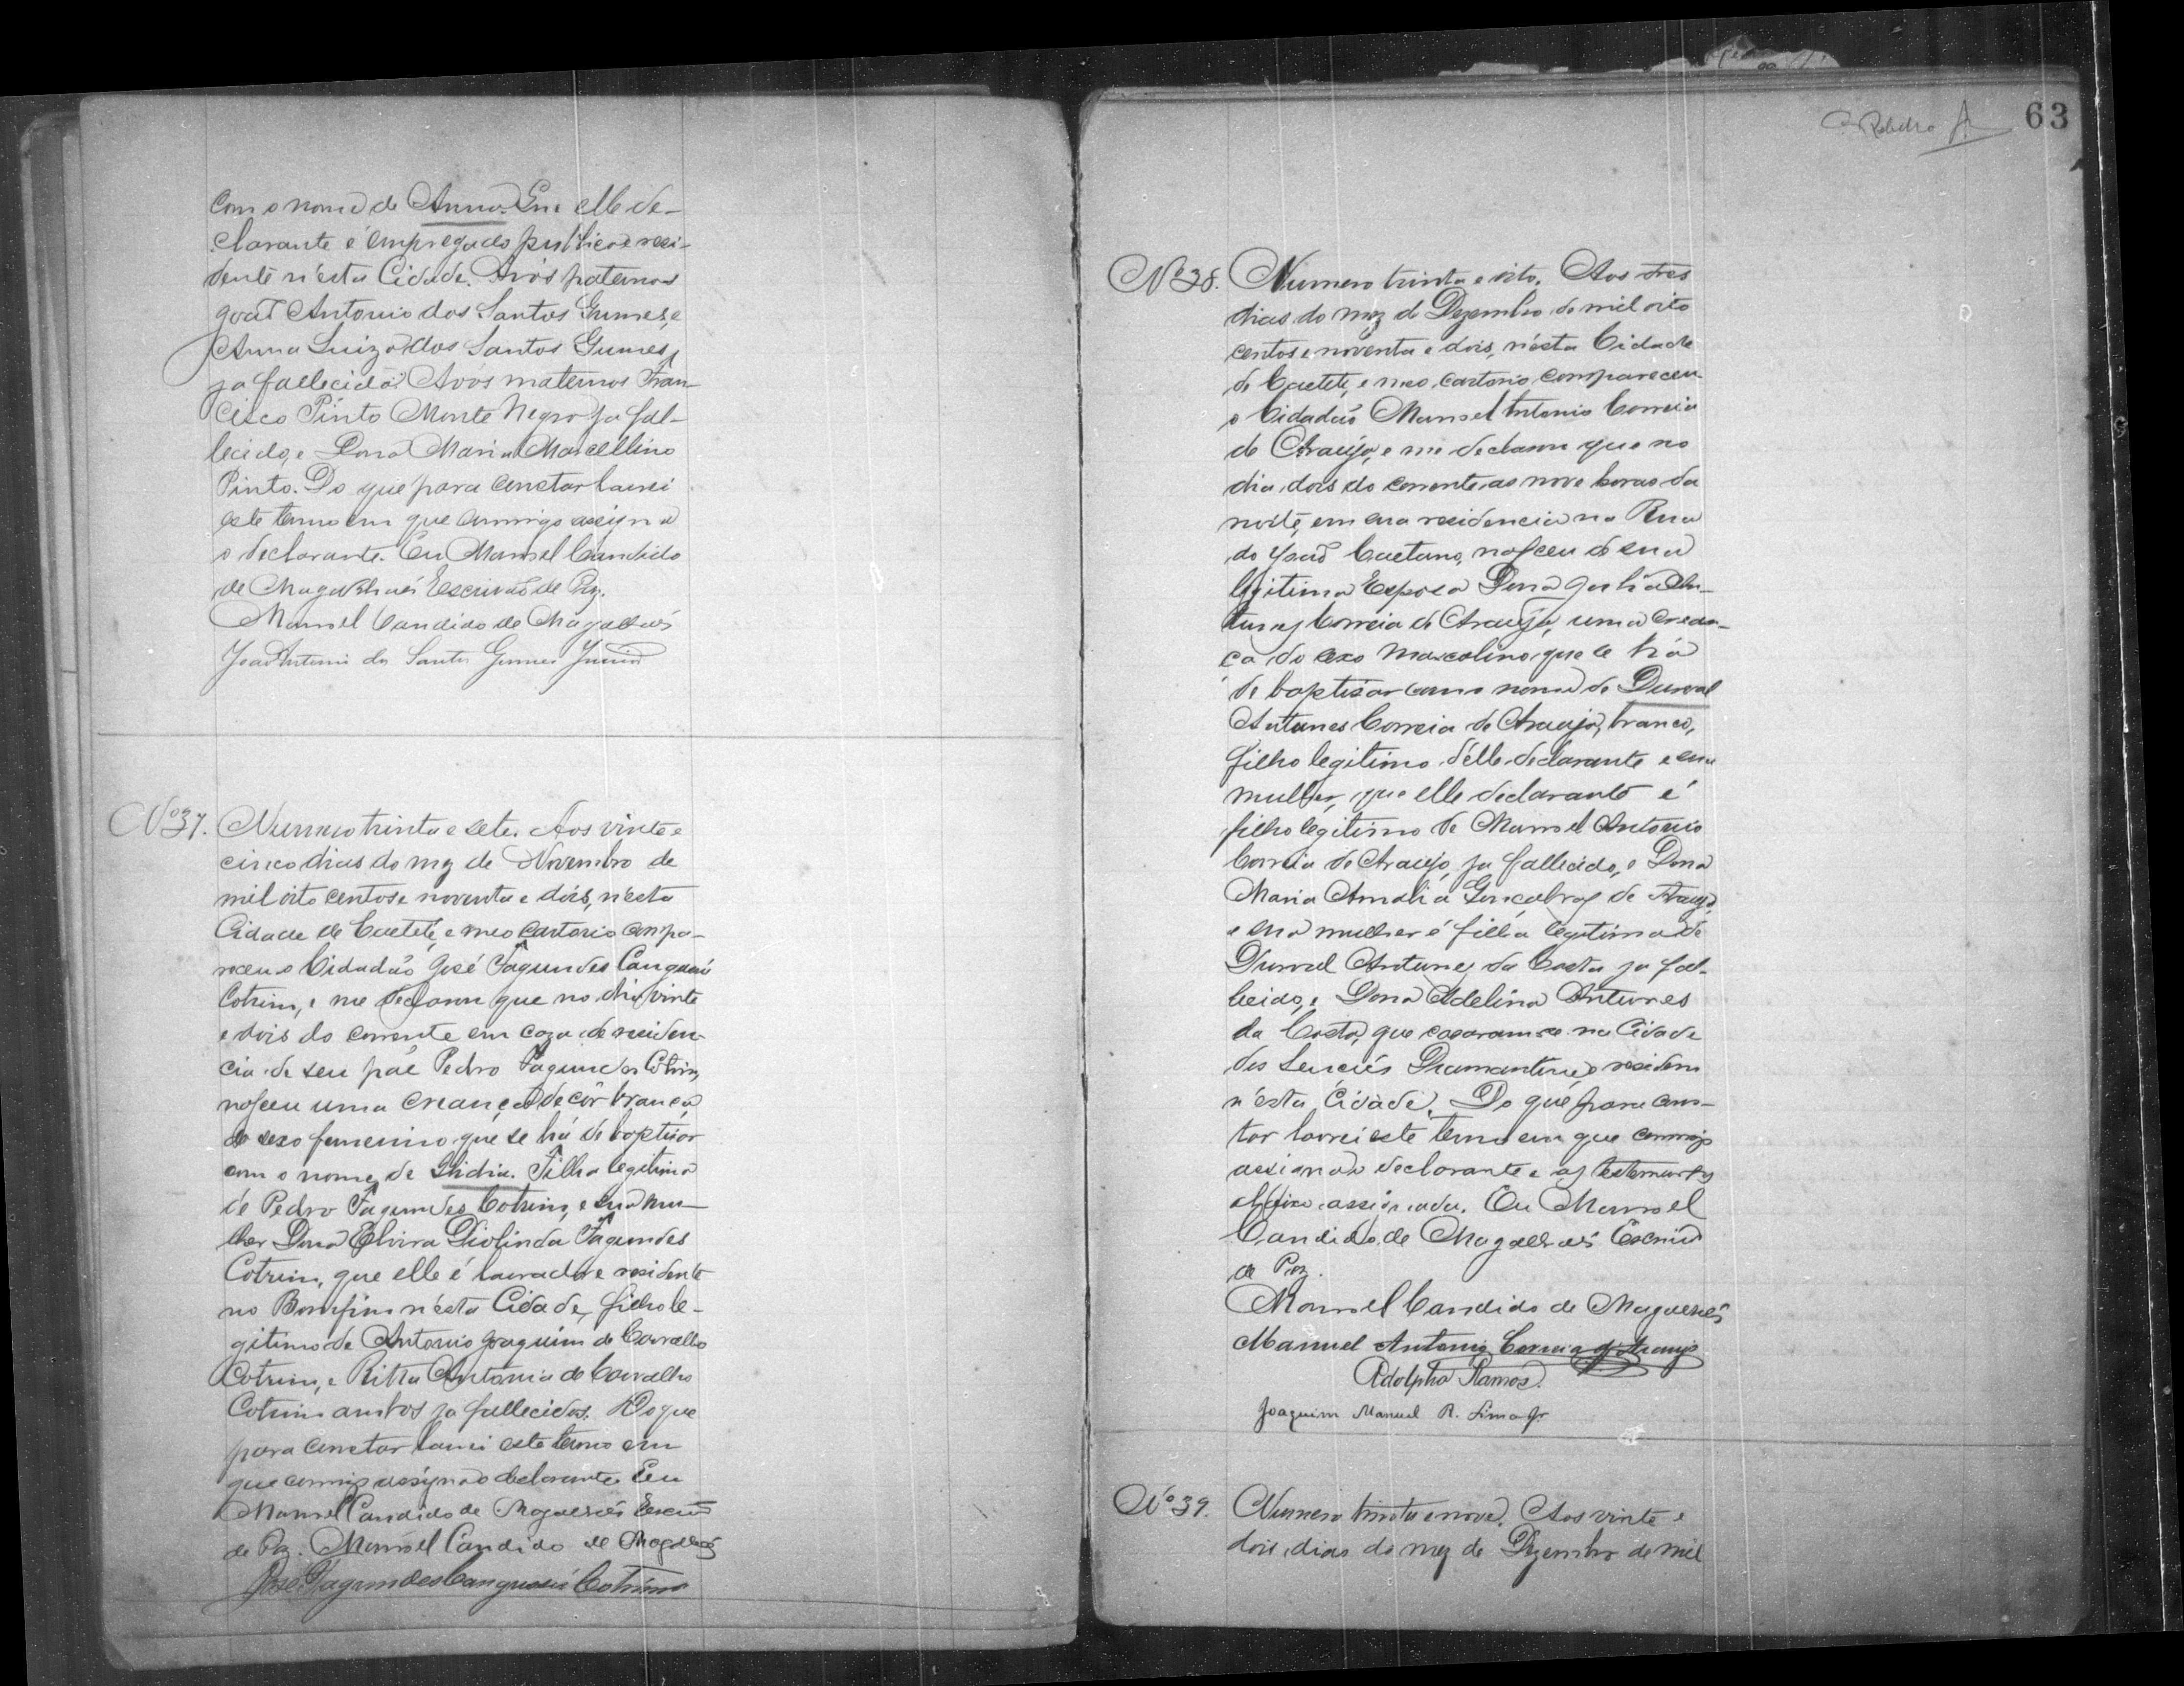 com o nome de Anna. Que elle de-
clarante é empregado publico e resi-
dente n'esta Cidade. Avós paternos
João Antonio dos Santos Gumes, e
Anna Luiza dos Santos Gumes,
ja fallecida. Avós maternos Fran-
cisco Pinto Monte Negro ja fal-
lecido, e Dona Maria Marcellina
Pinto. Do que para constar lavrei
este termo em que commigo assigna
o declarante. Eu Manoel Candido
de Magalhães Escrivão de Paz.
Manoel Candido de Magalhães
João Antonio dos Santos Gumes Junior
Nº 37. Numero trinta e sete. Aos vinte e
cinco dias do mez de Novembro de
mil oito centos e noventa e dois, n'esta
Cidade de Caetété, e meo cartorio compa-
receu o Cidadão José Fagundes Canguçú
Cotrim, e me declarou que no dia vinte
e dois do corrente em caza de residen-
cia de seu pae Pedro Fagundes Cotrim,
nasceu uma creança de côr branca,
do sexo femenino que se há de baptisar
com o nome de Lidia. Filha legitima
de Pedro Fagundes Cotrim, e sua mu-
lher Dona Elvira Diolinda Fagundes
Cotrim, que elle é lavrador e residente
no Bomfim n'esta Cidade, filho le-
gitimo de Antonio Joaquim de Carvalho
Cotrim, e Ritta Antonia de Carvalho
Cotrim ambos ja fallecidos. Do que
para constar lavrei este termo em
que commigo assigna o declarante. Eu
Manoel Candido de Magalhães Escrivão
de Paz. Manoel Candido de Magalhães
José Fagundes Canguçú Cotrim
63
Nº 38. Numero trinta e oito. Aos tres
dias do mez de Dezembro de mil oito
centos e noventa e dois, n'esta Cidade
de Caetété, e meo cartorio compareceu
o Cidadão Manoel Antonio Correia
de Araujo, e me declarou que no
dia dois do corrente as nove horas da
noite, em sua residencia na Rua
do João Caetano, nasceu de sua
legitima Esposa Dona An-
tunes Correia de Araujo, uma crean-
ça do sexo mascolino que se há
de baptisar com o nome de Durval
Antunes Correia de Araujo, branco,
filho legitimo d'elle declarante e sua
mulher, que elle declarante é
filho legitimo de Manoel Antonio
Correia de Araujo, ja fallecido, e Dona
Maria Amalia Gonçalves de Araujo,
e sua mulher é filha legitima de
Durval Antunes da Costa ja fal-
lecido, e Dona Adelina Antunes
da Costa, que casaram-se na Cidade
dos Lençóes Diamantina e residem
n'esta Cidade. Do que para cons-
tar lavrei este termo em que commigo
assigna o declarante e as testemunhas
abaixo assignadas. Eu Manoel
Candido de Magalhães Escrivão
de Paz.
Manoel Candido de Magalhães
Manuel Antonio Correia de Araujo
Adolpho Ramos.
Joaquim Manuel R. Lima Jr
Nº 39. Numero trinta e nove. Aos vinte e
dois dias do mez de Dezembro de mil